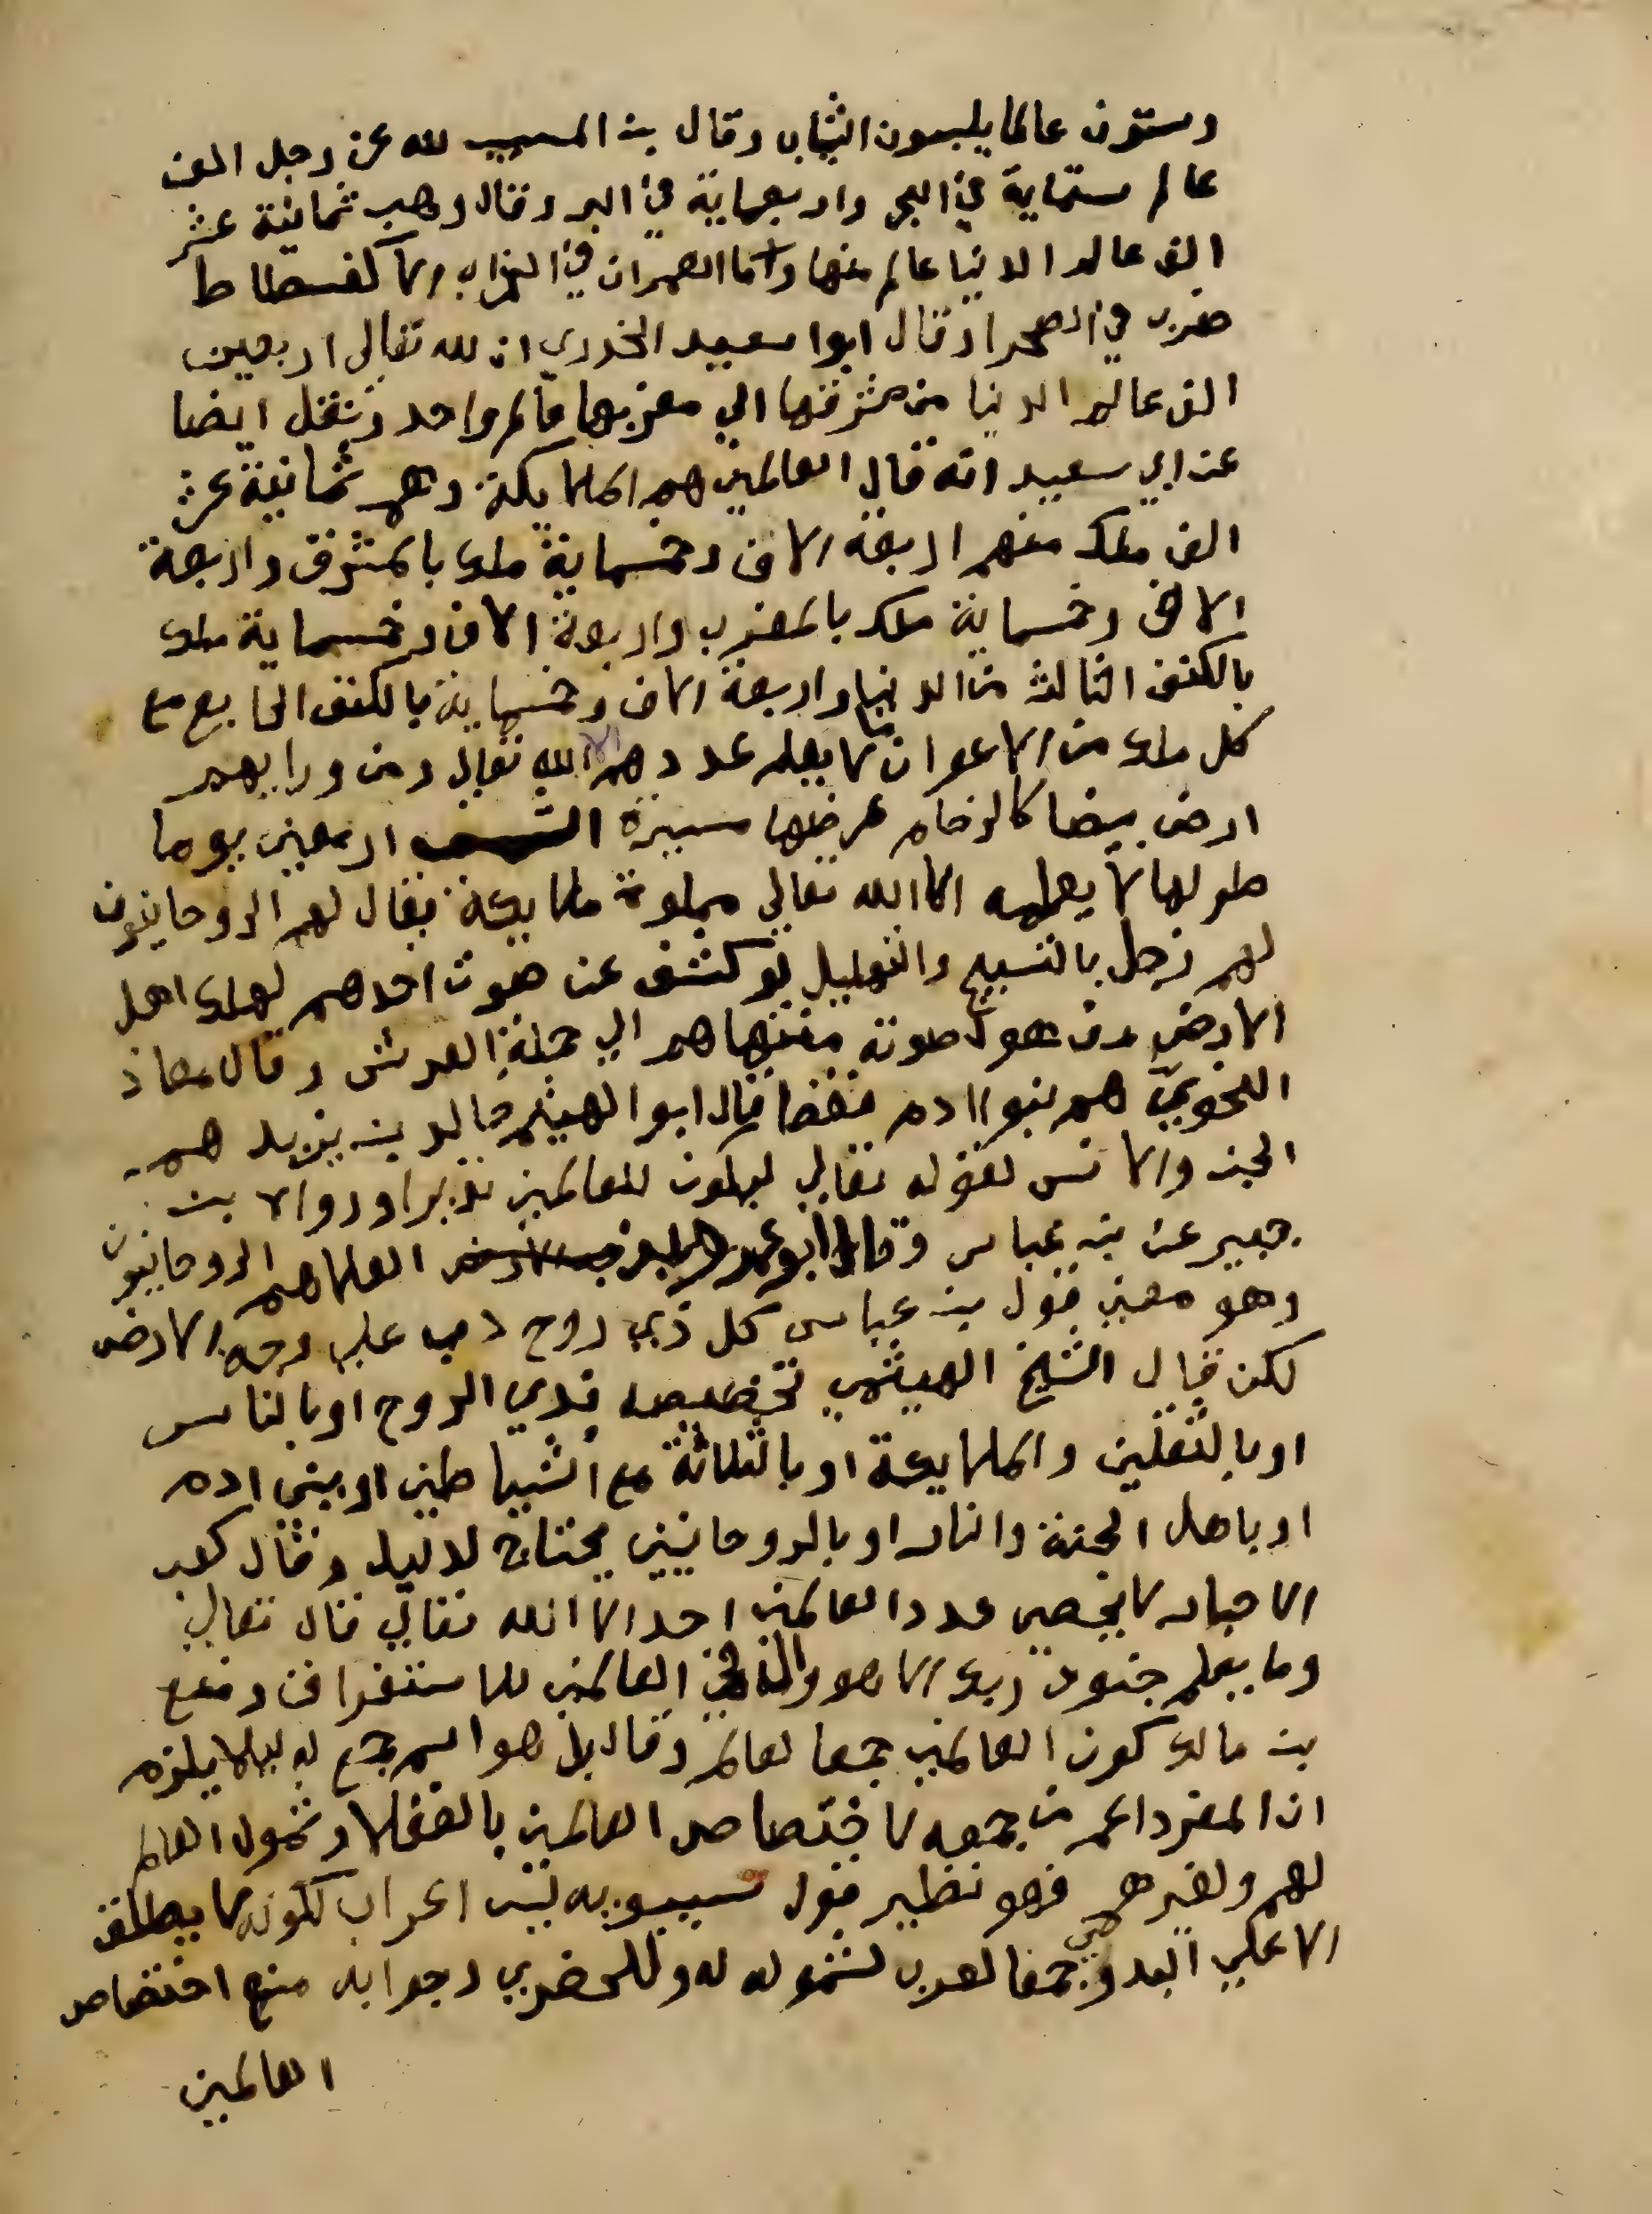 وستون عالما يلبسون الثياب وقال بن المسيب لله عز وجل الف
عالم ستماية في البحر واربعماية في البر وقال وهب ثمانية عشر
الف عالم الدنيا عالم منها وما العمران في الخراب الا كفسطاط
ضرب في الصحرا وقال ابوا سعيد الخدري ان لله تعالى اربعين
الف عالم الدنيا من مشرقها الي مغربها عالم واحد ونقل ايضا
عن ابي سعيد انه قال العالمين هم الملايكة وهم ثمانية عشر
الف ملك منهم اربعة الاف وخمساية ملك بالمشرق واربعة
الاف وخمساية ملك بالمغرب واربعة الاف وخمساية ملك
بالكنف الثالث من الدنيا واربعة الاف وخمساية بالكنف الرابع مع
كل ملك من الاعوان ما لا يعلم عددهم الا الله تعالي ومن ورايهم
ارض بيضا كالرخام عرضها مسيرة الشمس اربعين يوما
طولها لا يعلمه الا الله تعالي مملوة ملايكة يقال لهم الروحانيون
لهم زجل بالتسبيح والتهليل لو كشف عن صوت احدهم لهلك اهل
الارض من هول صوته منتهاهم الي حملة العرش وقال معاذ
النحوي هم بنوا ادم فقط قال ابو الهيثم خالد بن يزيد هم
الجن والانس لقوله تعالي ليكون للعالمين نذيرا ورواه بن
جبير عن بن عباس وقال ابو عمر العلا هم الروحانيون
وهو معني قول بن عباس كل ذي روح دب علي وجه الارض
لكن قال الشيخ الهيثمي تخصيصه بذي الروح او بالناس
او بالثقلين والملايكة او بالثلاثة مع الشياطين او ببني ادم
او باهل الجنة والنار او بالروحانيين يحتاج لدليل وقال كعب
الاحبار لا يحصي عدد العالمين احد الا الله تعالي قال تعالي
وما يعلم جنود ربك الا هو وال في العالمين للاستغراق ومنع
بن مالك كون العالمين جمعا لعالم وقال بل هو اسم جمع له ليلا يلزم
ان المفرد اعم من جمعه لاختصاص العالمين بالعقلا وشمول العالم
لهم ولغيرهم فهو نظير قول سيبويه ليس اعراب لكونه لا يطلق
الا علي البدوي جمعا لعرب لشموله له وللحضري وجوابه منع اختصاص
العالمين